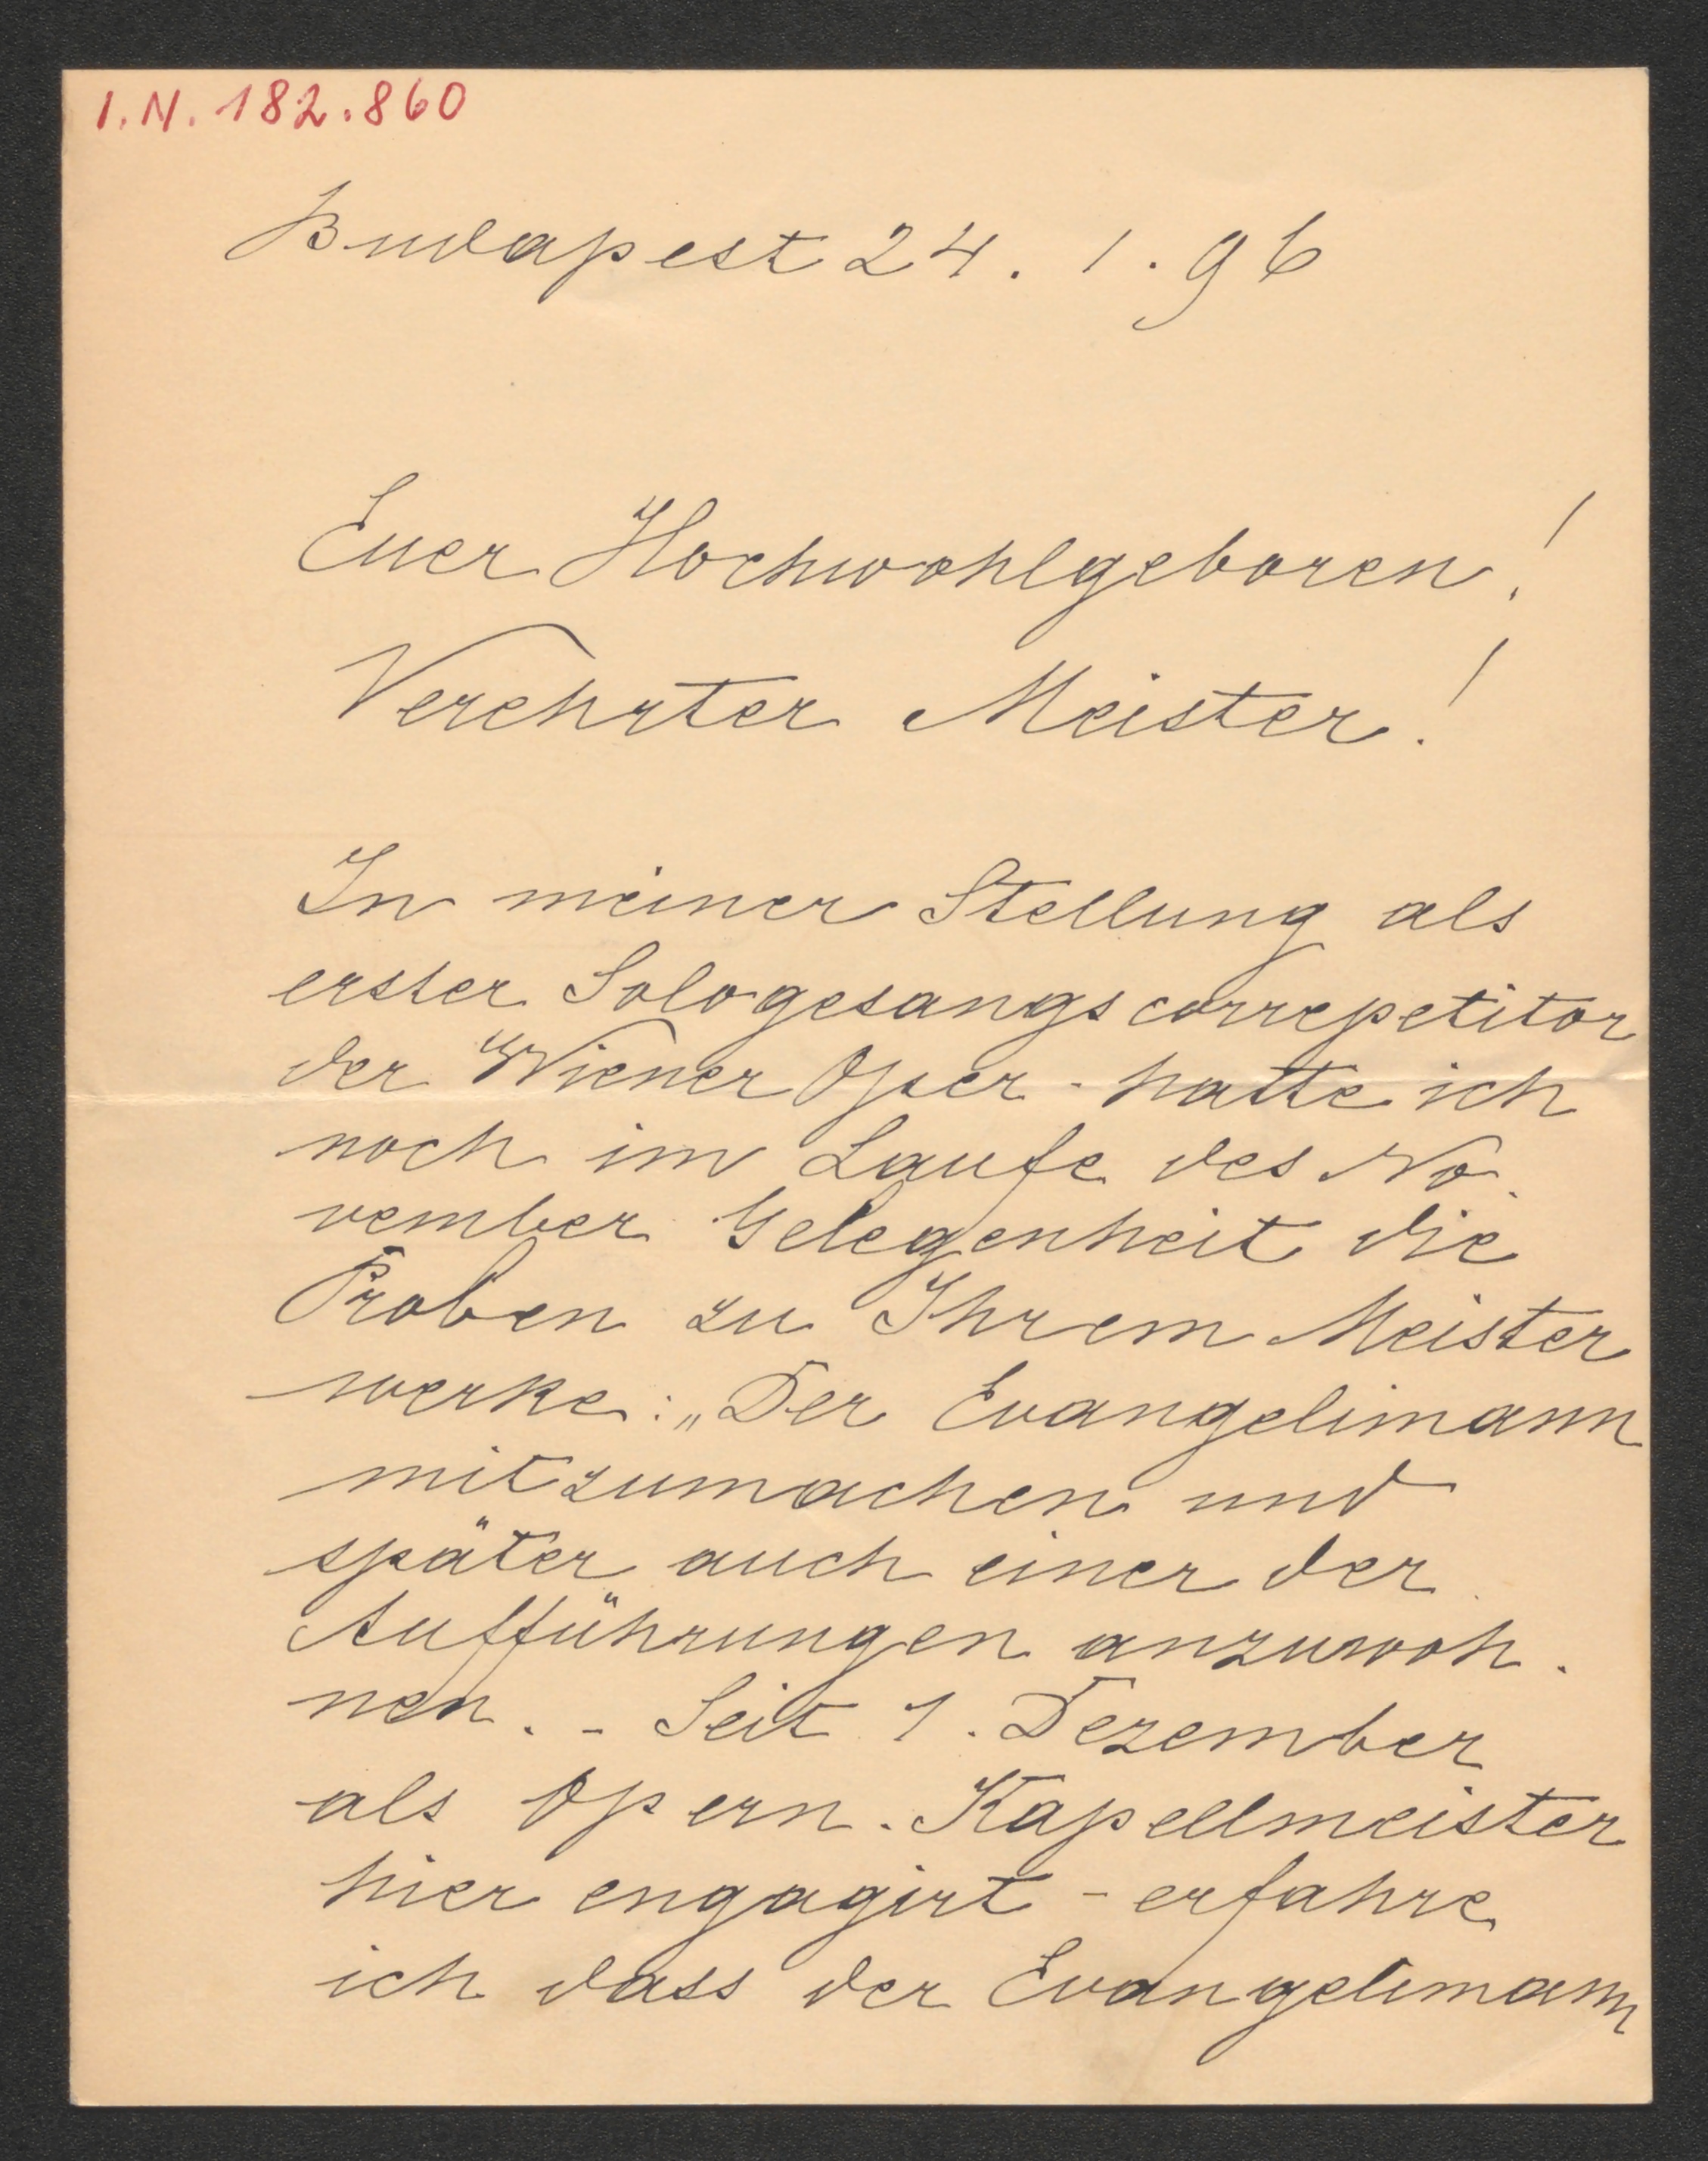 I.N. 182.860
Budapest 24. 1. 96
Euer Hochwohlgeboren!
Verehrter Meister!
In meiner Stellung als
erster Sologesangscorrepetitor
der Wiener Oper - hatte ich
noch im Laufe des No-
vember Gelegenheit die
Proben zu Ihrem Meister
werke: „Der Evangelimann
mitzumachen und
später auch einer der
Aufführungen anzuwoh-
nen. - Seit 1. Dezember
als Opern-Kapellmeister
hier engagirt - erfahre
ich dass der Evangelimann